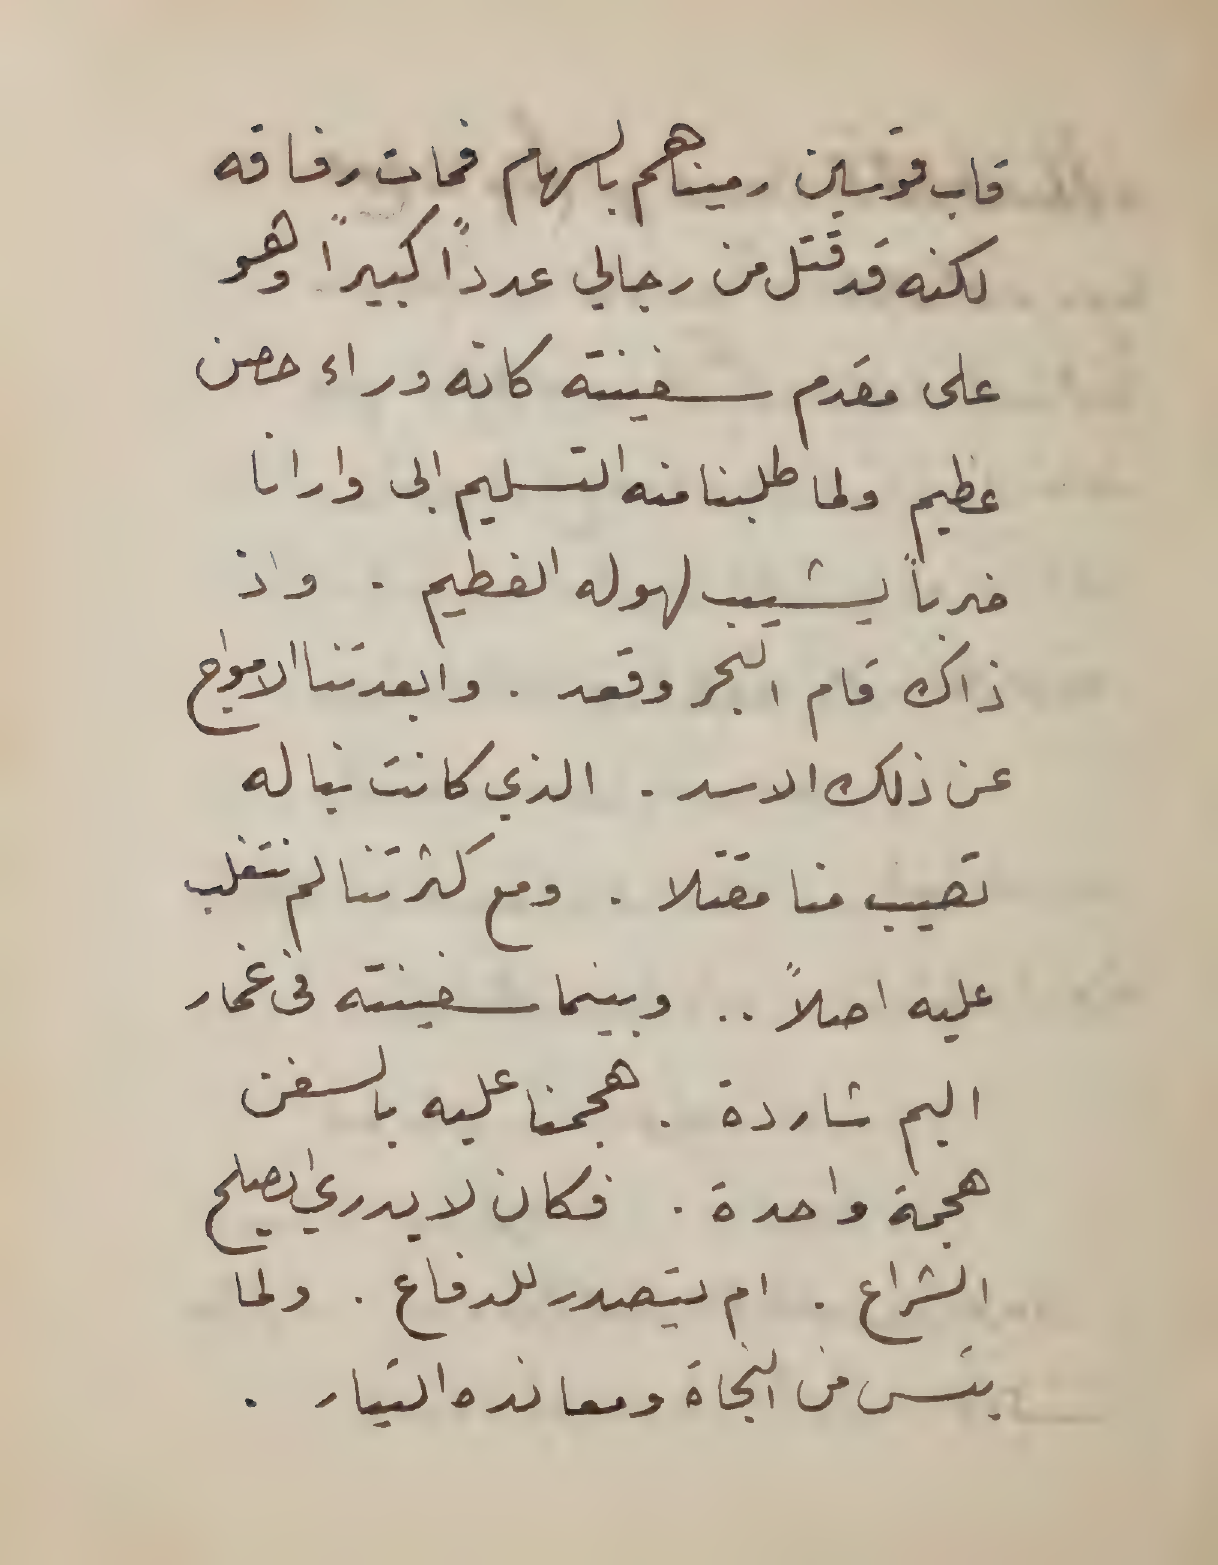 قاب قوسين رميناهم بالسهام فمات رفاقه
لكنه قد قتل من رجالي عدداً كبيراً وهو
على مقدم سفينته كانه وراء حصن
عظيم ولما طلبنا منه التسليم ابى وارانا
ضرباً يشيب لهوله الفطيم . واذ
ذاك قام البحر وقعد . وابعدتنا الامواج
عن ذلك الاسد . الذي كانت نباله
تصيب منا مقتلا . ومع كثرتنا لم نتغلب
عليه اصلاً .. وبينما سفينته في غمار
اليم شاردة . هجمنا عليه بالسفن
هجمة واحدة . فكان لا يدري ايصلح
الشراع . ام يتصدر للدفاع . ولما
يئس من النجاة ومعانده التيار .